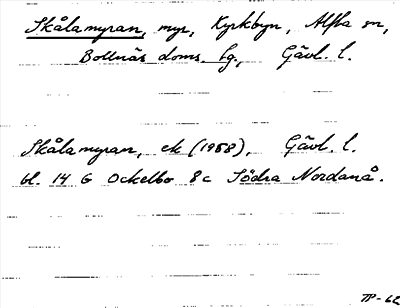 Skålamyran, myr, Kyrkbyn, Alfta sn,
Bollnäs doms. hg., Gävl. l.
Skålamyran, ek (1958), Gävl. l.
bl. 14 G Ockelbo 8c Södra Nordanå.
TP-62